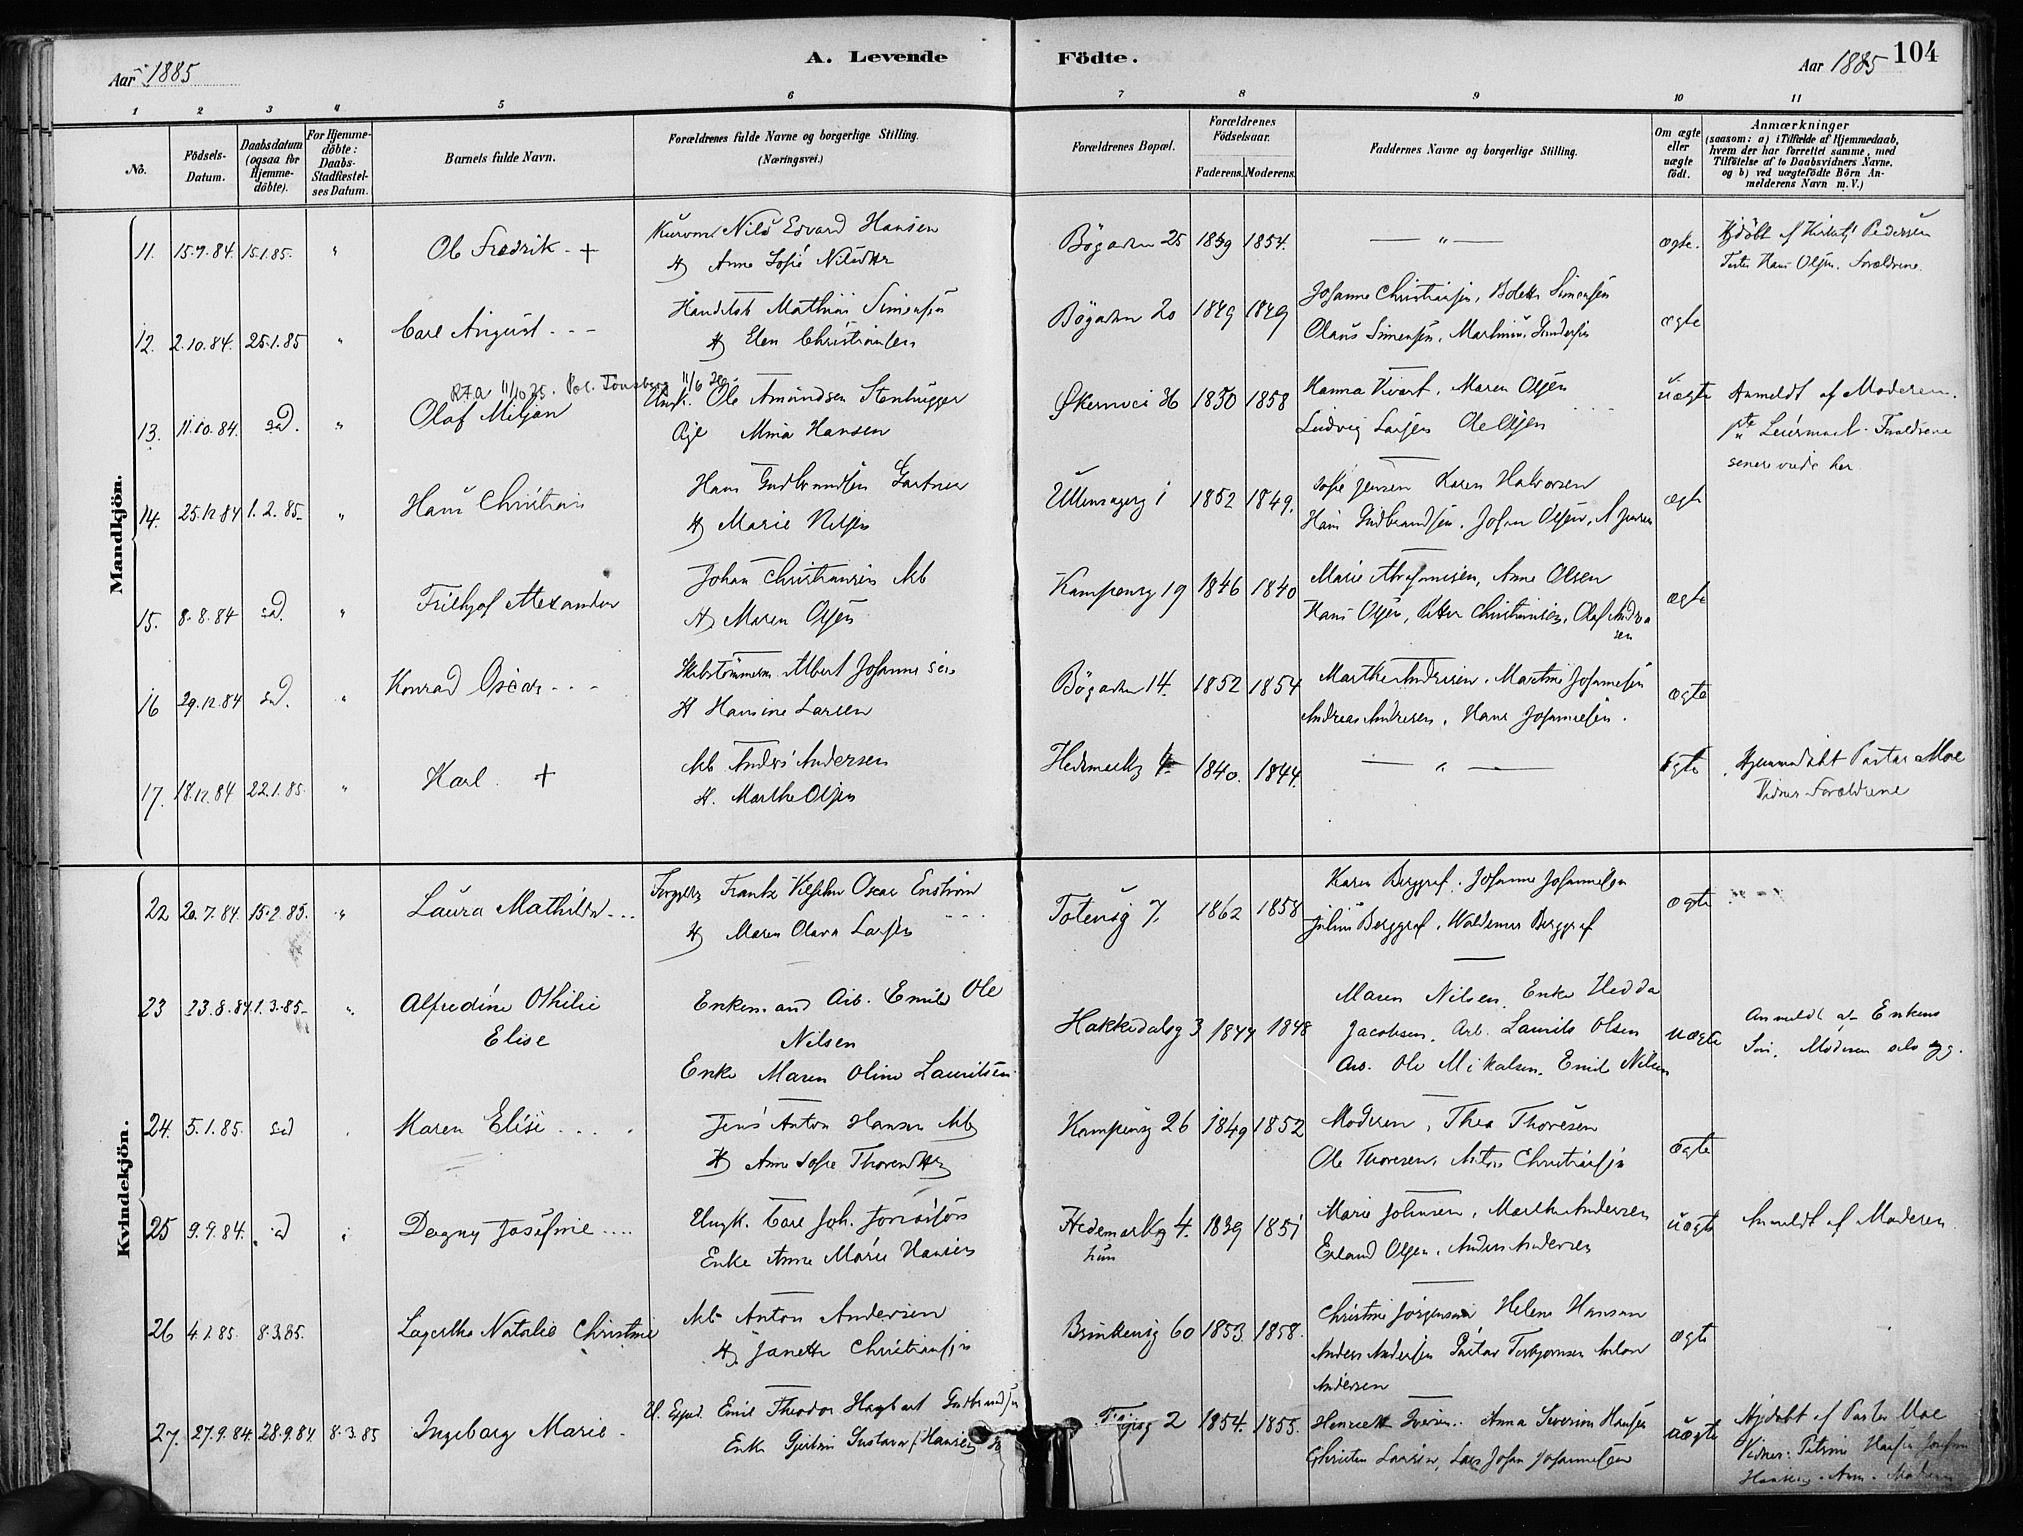 Aar 1885
A. Levende Födte.
Aar 1885 104
1 2 3 4 5 6 7 8 9 10 11
No.
Födsels-Datum.
Daabsdatum (ogsaa for Hjemme-döbte).
For Hjemme-döbte: Daabs-Stadfæstel-ses Datum.
Barnets fulde Navn.
Forældrenes fulde Navne og borgerlige Stilling.
(Næringsvei.)
Forældrenes Bopæl.
Forældrenes Födselsaar.
Faderens. Moderens.
Faddernes Navne og borgerlige Stilling.
Om ægte eller uægte födt.
Anmærkninger
(saasom: a) i Tilfælde af Hjemmedaab,
hvem der har forrettet samme, med
Tilföielse af to Daabsvidners Navne,
og b) ved uægtefödte Börn An-
melderens Navn m. V.)
Mandkjön.
11. 15.7.84. 15.1.85. " Ole Fredrik - +
Nils Edvard Hansen
H Anne Sofie
Bögaden 25 1859 1854. — " — ægte.
Pedersen
Hans Olsen. Forældrene
12. 2.10.84. 25.1.85 " Carl August - - -
Mathias Simensen
H Elen Christiansen
Bögaden 20 1849 1849
Johanne Christiansen, Bolette Simensen
Olaus Simensen, Martinus Gundersen
ægte
11/10 25. Pol. Tønsberg 11/6 26
13. 11.10.84. sd. " Olaf Miljan
Ungk. Ole Amundsen Stenhugger
Pige Mina Hansen
Økernvei 1830 1858
Hanna Kvart, Maren Olsen
Ludvig Larsen Ole Olsen
uægte
Anmeldt af Moderen.
Leiermaal. Forældrene
senere viede her
14. 25.12.84 1.2.85 " Hans Christian
Hans Gudbrandsen Gartner
H Marie Nilsen
Ullensagerg 1 1852 1849.
Sofie Jensen Karen Halvorsen
Hans Gudbrandsen, Johan Olsen, A Jensen
ægte
15. 8.8.84 sd. " Frithjof Alexander
Johan Christiansen Arb
H Maren Olsen
Kampeng 19 1846 1840
Marie, Anne Olsen
Hans Olsen, Petter Christiansen, Olaf Andrea
sen
ægte
16 29.12.84 sd. " Konrad Oscar - - -
Albert Johannesen
H Hansine Larsen
Bögaden 14. 1852 1854
Marthe Andresen, Martine Johannesen
Andreas Andresen, Hans Johannesen.
ægte
17. 18.12.84 22.1.85 " Karl. +
Arb. Anders Andersen
H. Marthe Olsen
Hedemarksg 1840. 1844. — " — ægte
Hjemmedøbt Pastor Moe
Vidner Forældrene
Kvindekjön.
22 20.7.84. 15.2.85. " Laura Mathilde - - -
Frantz Vilhelm Oscar Enström
H Maren Olava Larsen
Totensg 7. 1862 1858
Karen Berggref. Johanne Johannesen
Julius Berggref, Waldemar Berggref
ægte
23 23.8.84. 1.3.85. " Alfredine Othilie
Elise
Enkemand Arb. Emil Ole
Nilsen
Enke Maren Oline Lauritsen
Hakkedalsg 3 1844 1848
Maren Nilsen, Enke Hedda
Jacobsen, Arb. Laurits Olsen
Arb. Ole Mikalsen. Emil Nilsen
uægte
Anmeldt af Enkens
Søn, Moderen selv syg.
24. 5.1.85. sd Karen Elise . . . .
Jens Anton Hansen Arb
H Anne Sofie
Kampensg 26 1849 1852
Moderen, Thea Thoresen
Ole Thoresen, Anton Christiansen
ægte
25 9.9.84. sd Dagny Josefine ....
Ungk. Carl Joh.
Enke Anne Marie Hansen
Hedemarksg 4.
hun
1839 1851
Marie Johnsen, Marthe Andersen
Erland Olsen, Anders Andersen
uægte
Anmeldt af Moderen
26 4.1.85. 8.3.85. Lagertha Natalie Christine
Arb. Anton Andersen
H. Janette Christiansen
Brinkensg 60 1853. 1858.
Christine Jörgensen Helene Hansen
Anders Andersen Torbjørnsen Anton
Andersen
ægte
27. 27.9.84. 28.9.84 8.3.85 Ingeborg Marie
Emil Theodor Hagbart Gudbrandsen
Enke Gustava Hansen
2 1854. 1855.
Henriette Iversen. Anna Severine Hansen
Christen Larsen, Lars Johan Johannesen
uægte
Hjdøbt af Pastor Moe
Vidner: Petrine